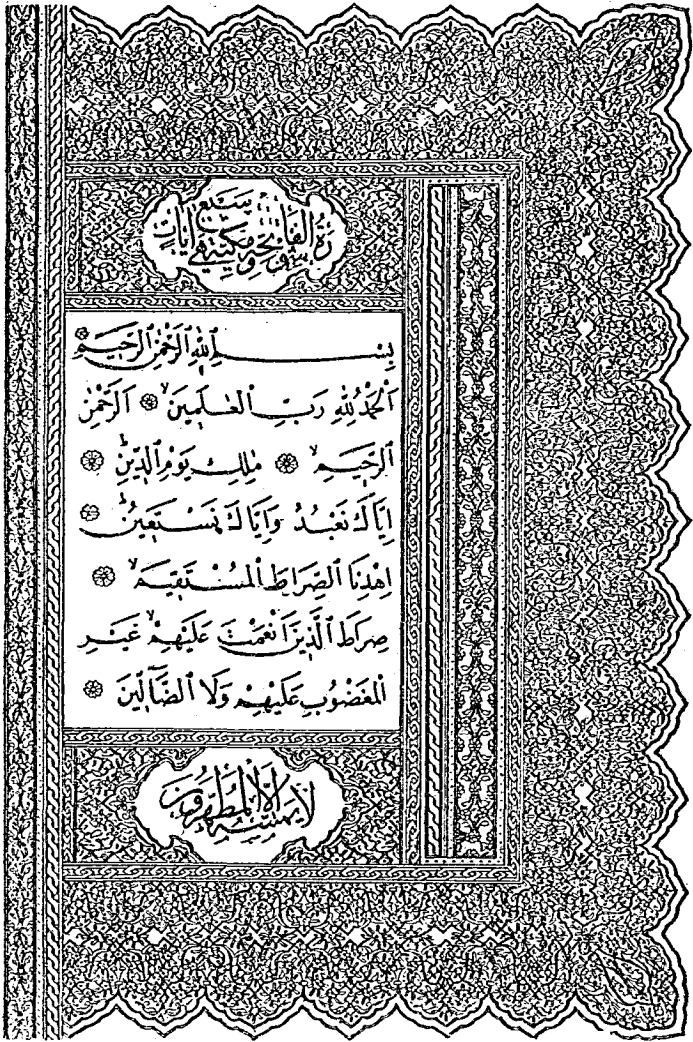 سورة الفاتحة مكية وهي سبع آيات
بِسْمِ ٱللّٰهِ ٱلرَّحْمٰنِ ٱلرَّحٖيمِ
اَلْحَمْدُ لِلّٰهِ رَبِّ ٱلْعٰلَمٖينَۙ اَلرَّحْمٰنِ
ٱلرَّحٖيمِۙ مٰلِكِ يَوْمِ ٱلدّٖينِؕ
اِيَّاكَ نَعْبُدُ وَاِيَّاكَ نَسْتَعٖينُؕ
اِهْدِنَا ٱلصِّرَاطَ ٱلْمُسْتَقٖيمَۙ
صِرَاطَ ٱلَّذٖينَ اَنْعَمْتَ عَلَيْهِمْۙ غَيْرِ
ٱلْمَغْضُوبِ عَلَيْهِمْ وَلَا ٱلضَّٓالّٖينَ
لا يمسه الا المطهرون